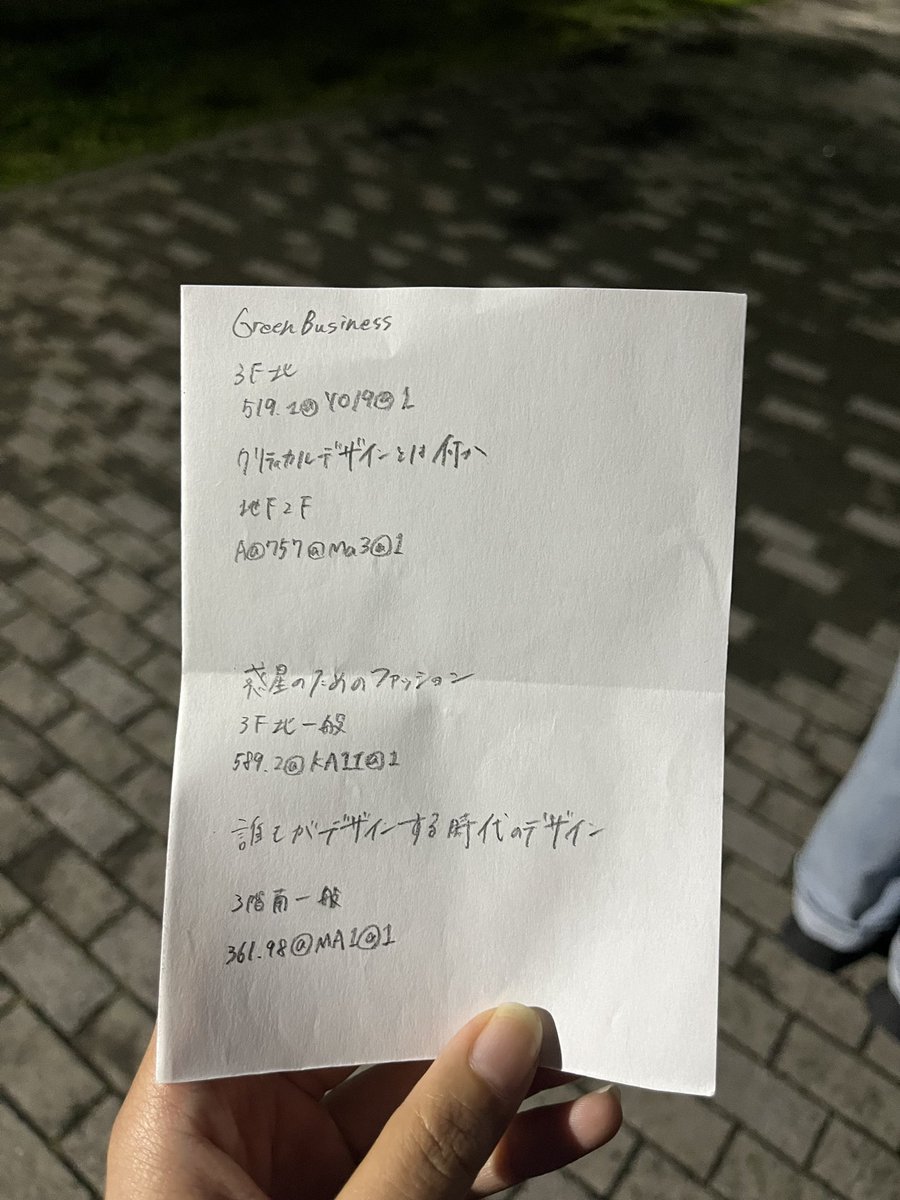 Green Business
3F北
519.1@YO19@1
クリティカルデザインとは何か
地下2F
A@757@Ma3@1
惑星のためのファッション
3F北一般
589.2@KA11@1
誰もがデザインする時代のデザイン
3階南一般
361.98@MA1@1